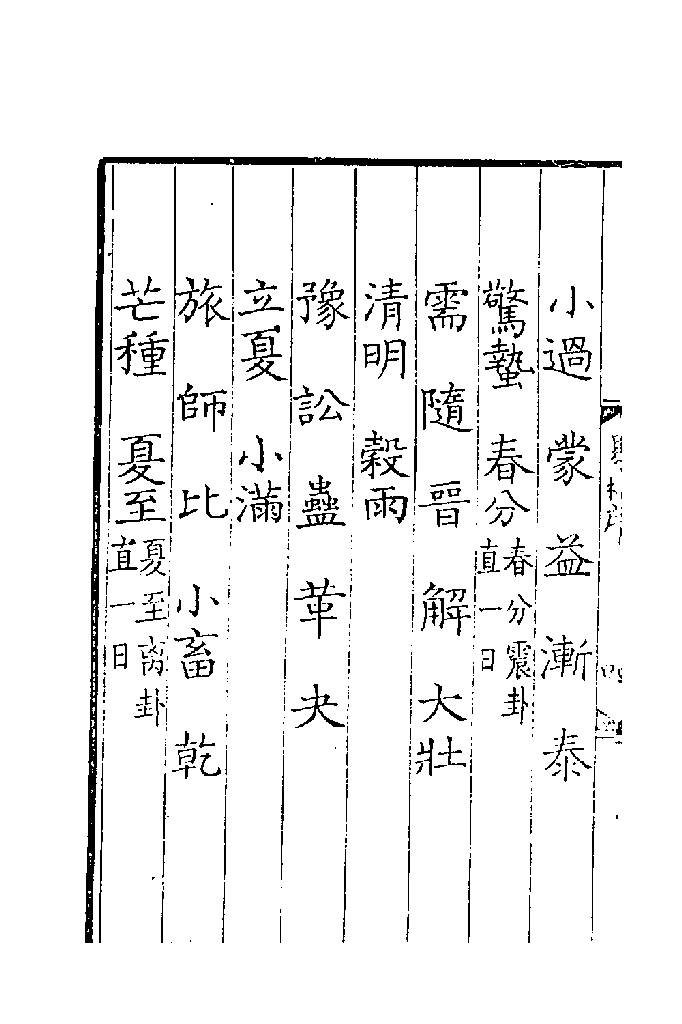 小過 蒙 益 漸 泰
驚蟄 春分 春分震卦直一日
需 隨 晉 解 大壯
清明 穀雨
豫 訟 蠱 革 夬
立夏 小滿
旅 師 比 小畜 乾
芒種 夏至 夏至离卦直一日